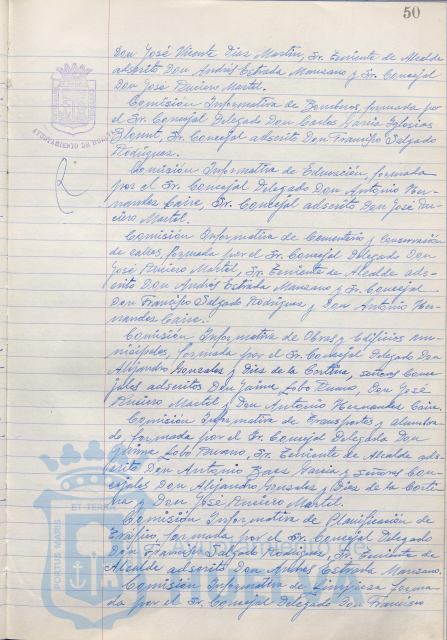 50
Don José Vicente Díaz Martín, Sr. Teniente de Alcalde
adscrito Don Andrés Estrada Manzano y Sr. Concejal
Don José Piñero Martel.
Comisión Informativa de Bomberos, formada por
el Sr. Concejal Delegado Don Carlos García Iglesias
Sr. Concejal adscrito Don Francisco Salgado
Rodríguez.
AYUNTAMIENTO DE
Comisión Informativa de Educación, formada
por el Sr. Concejal Delegado Don Antonio Her-
nandez Caire, Sr. Concejal adscrito Don José Pi-
ñero Martel.
Comisión Informativa de Cementerio y Conservación
de calles, formada por el Sr. Concejal Delegado Don
José Piñero Martel, Sr. Teniente de Alcalde ads-
crito Don Andrés Estrada Manzano y Sr. Concejal
Don Francisco Salgado Rodríguez y Don Antonio Her-
nandez Caire.
Comisión Informativa de Obras y Edificios mu-
nicipales, formada por el Sr. Concejal Delegado Don
Alejandro Gonzalez y Díez de la Cortina, señores Conce-
jales adscritos Don Jaime Lobo Don José
Piñero Martel y Don Antonio Hernandez Caire.
Comisión Informativa de Transportes y alumbra-
do, formada por el Sr. Concejal Delegado Don
Jaime Lobo Sr. Teniente de Alcalde ads-
crito Don Antonio Baes García y señores Con-
cejales Don Alejandro Gonzalez y Díez de la Corti-
na y Don José Piñero Martel.
Comisión Informativa de Planificación de
Tráfico, formada por el Sr. Concejal Delegado
Don Francisco Salgado Rodríguez, Sr. Teniente de
Alcalde adscrito Don Andrés Estrada Manzano.
Comisión Informativa de Limpieza forma-
da por el Sr. Concejal Delegado Don Francisco
ET TERRAE
PORTUS MARIS
HUELVA